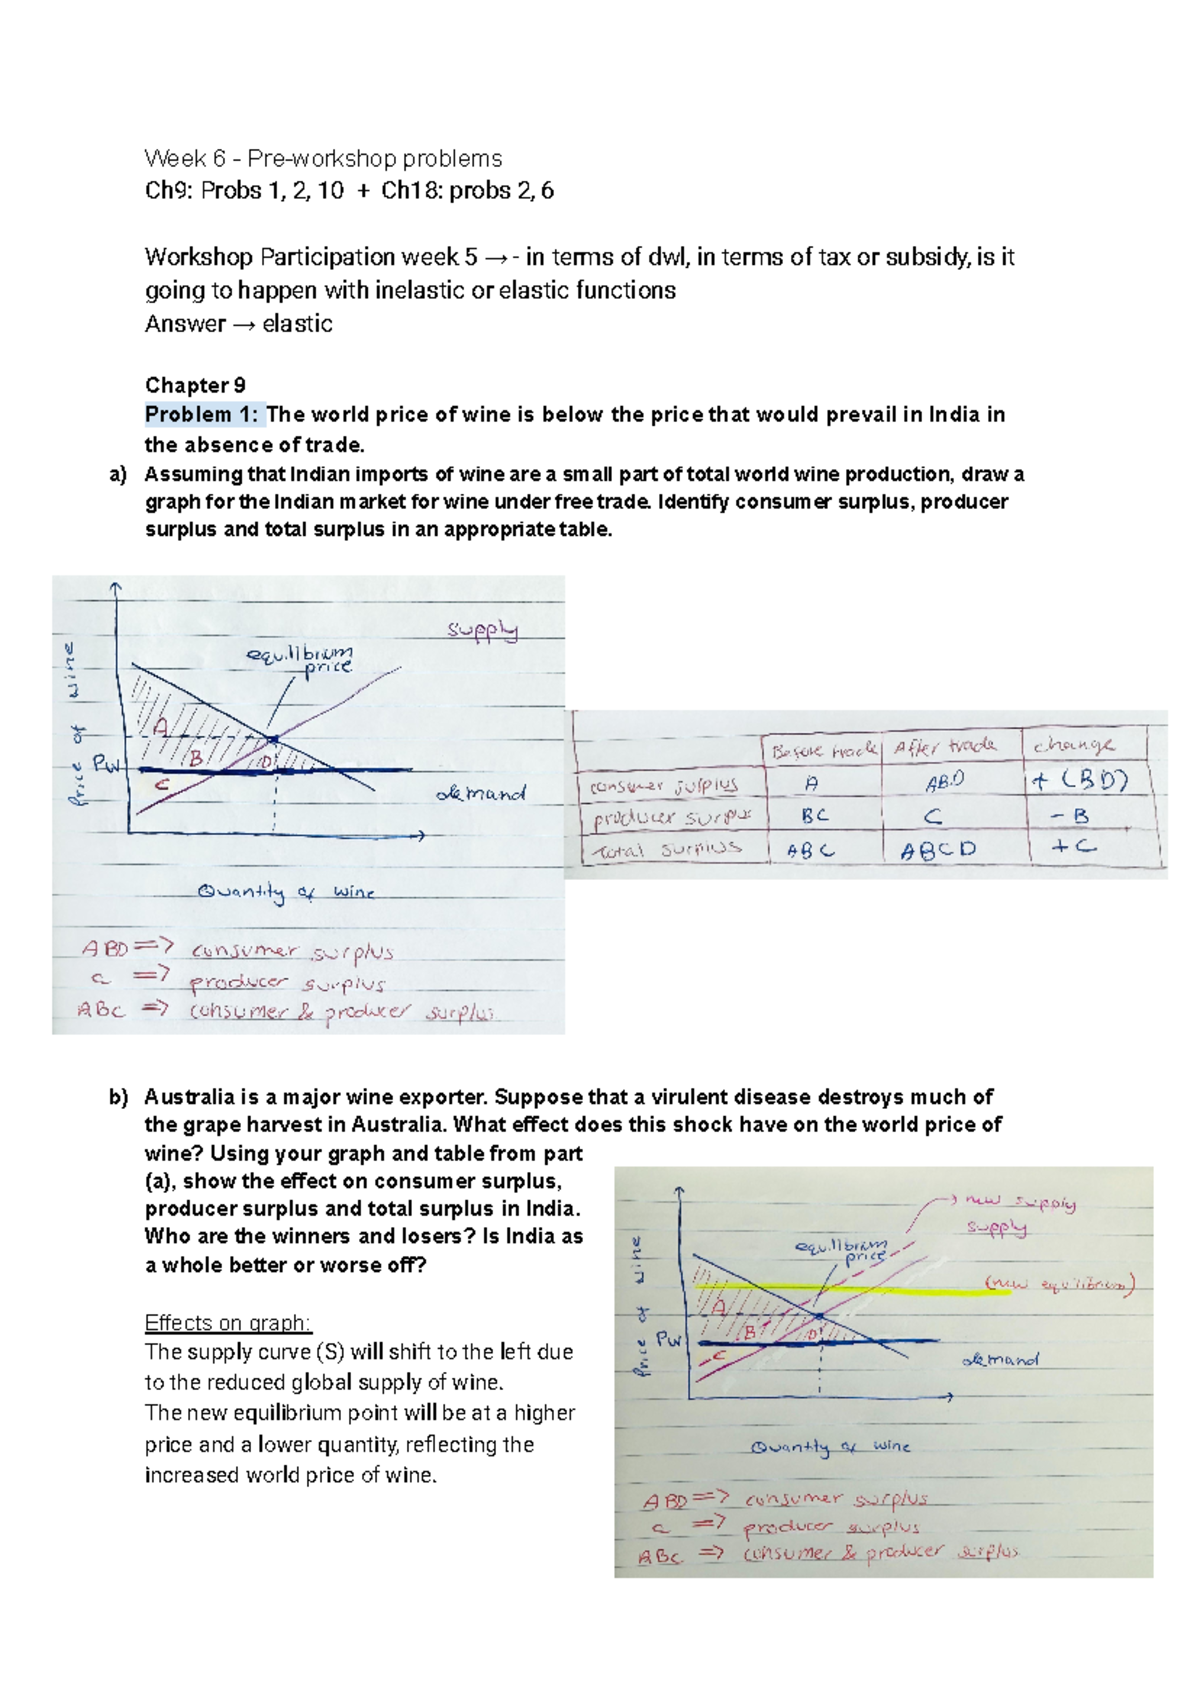 Week 6 - Pre-workshop problems
Ch9: Probs 1, 2, 10 + Ch18: probs 2, 6
Workshop Participation week 5 → - in terms of dwl, in terms of tax or subsidy, is it
going to happen with inelastic or elastic functions
Answer → elastic
Chapter 9
Problem 1: The world price of wine is below the price that would prevail in India in
the absence of trade.
a) Assuming that Indian imports of wine are a small part of total world wine production, draw a
graph for the Indian market for wine under free trade. Identify consumer surplus, producer
surplus and total surplus in an appropriate table.
supply
equilibrium
price
Price of wine
A
Pw
B
D
C
demand
Quantity of wine
ABD => consumer surplus
c => producer surplus
ABC => consumer & producer surplus
Before trade After trade change
consumer surplus A ABD + (BD)
producer surplus BC C - B
Total surplus ABC ABCD + C
b) Australia is a major wine exporter. Suppose that a virulent disease destroys much of
the grape harvest in Australia. What effect does this shock have on the world price of
wine? Using your graph and table from part
(a), show the effect on consumer surplus,
producer surplus and total surplus in India.
Who are the winners and losers? Is India as
a whole better or worse off?
Effects on graph:
The supply curve (S) will shift to the left due
to the reduced global supply of wine.
The new equilibrium point will be at a higher
price and a lower quantity, reflecting the
increased world price of wine.
new supply
supply
equilibrium
price
(new equilibrium)
Price of wine
A
B
D
Pw
C
demand
Quantity of wine
ABD => consumer surplus
c => producer surplus
ABC => consumer & producer surplus